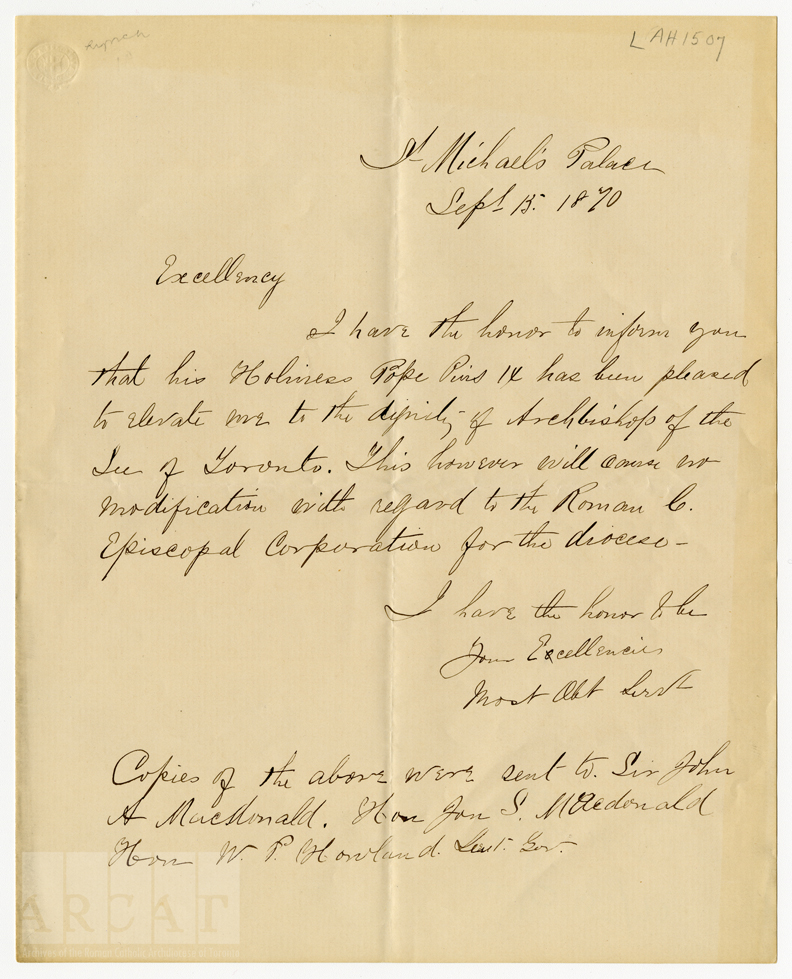 Lynch
L AH1507
St Michael's Palace
Sept 15. 1870
Excellency
I have the honor to inform you
that his Holiness Pope Pius IX has been pleased
to elevate me to the dignity of Archbishop of the
See of Toronto. This however will cause no
modification with regard to the Roman C.
Episcopal Corporation for the diocese –
I have the honor to be
Your Excellencies
Most Obt Servt
Copies of the above were sent to. Sir John
A Macdonald. Hon Jon S. MAcdonald
Hon W. P. Howland. Lieut. Gov.
ARCAT
Archives of the Roman Catholic Archdiocese of Toronto